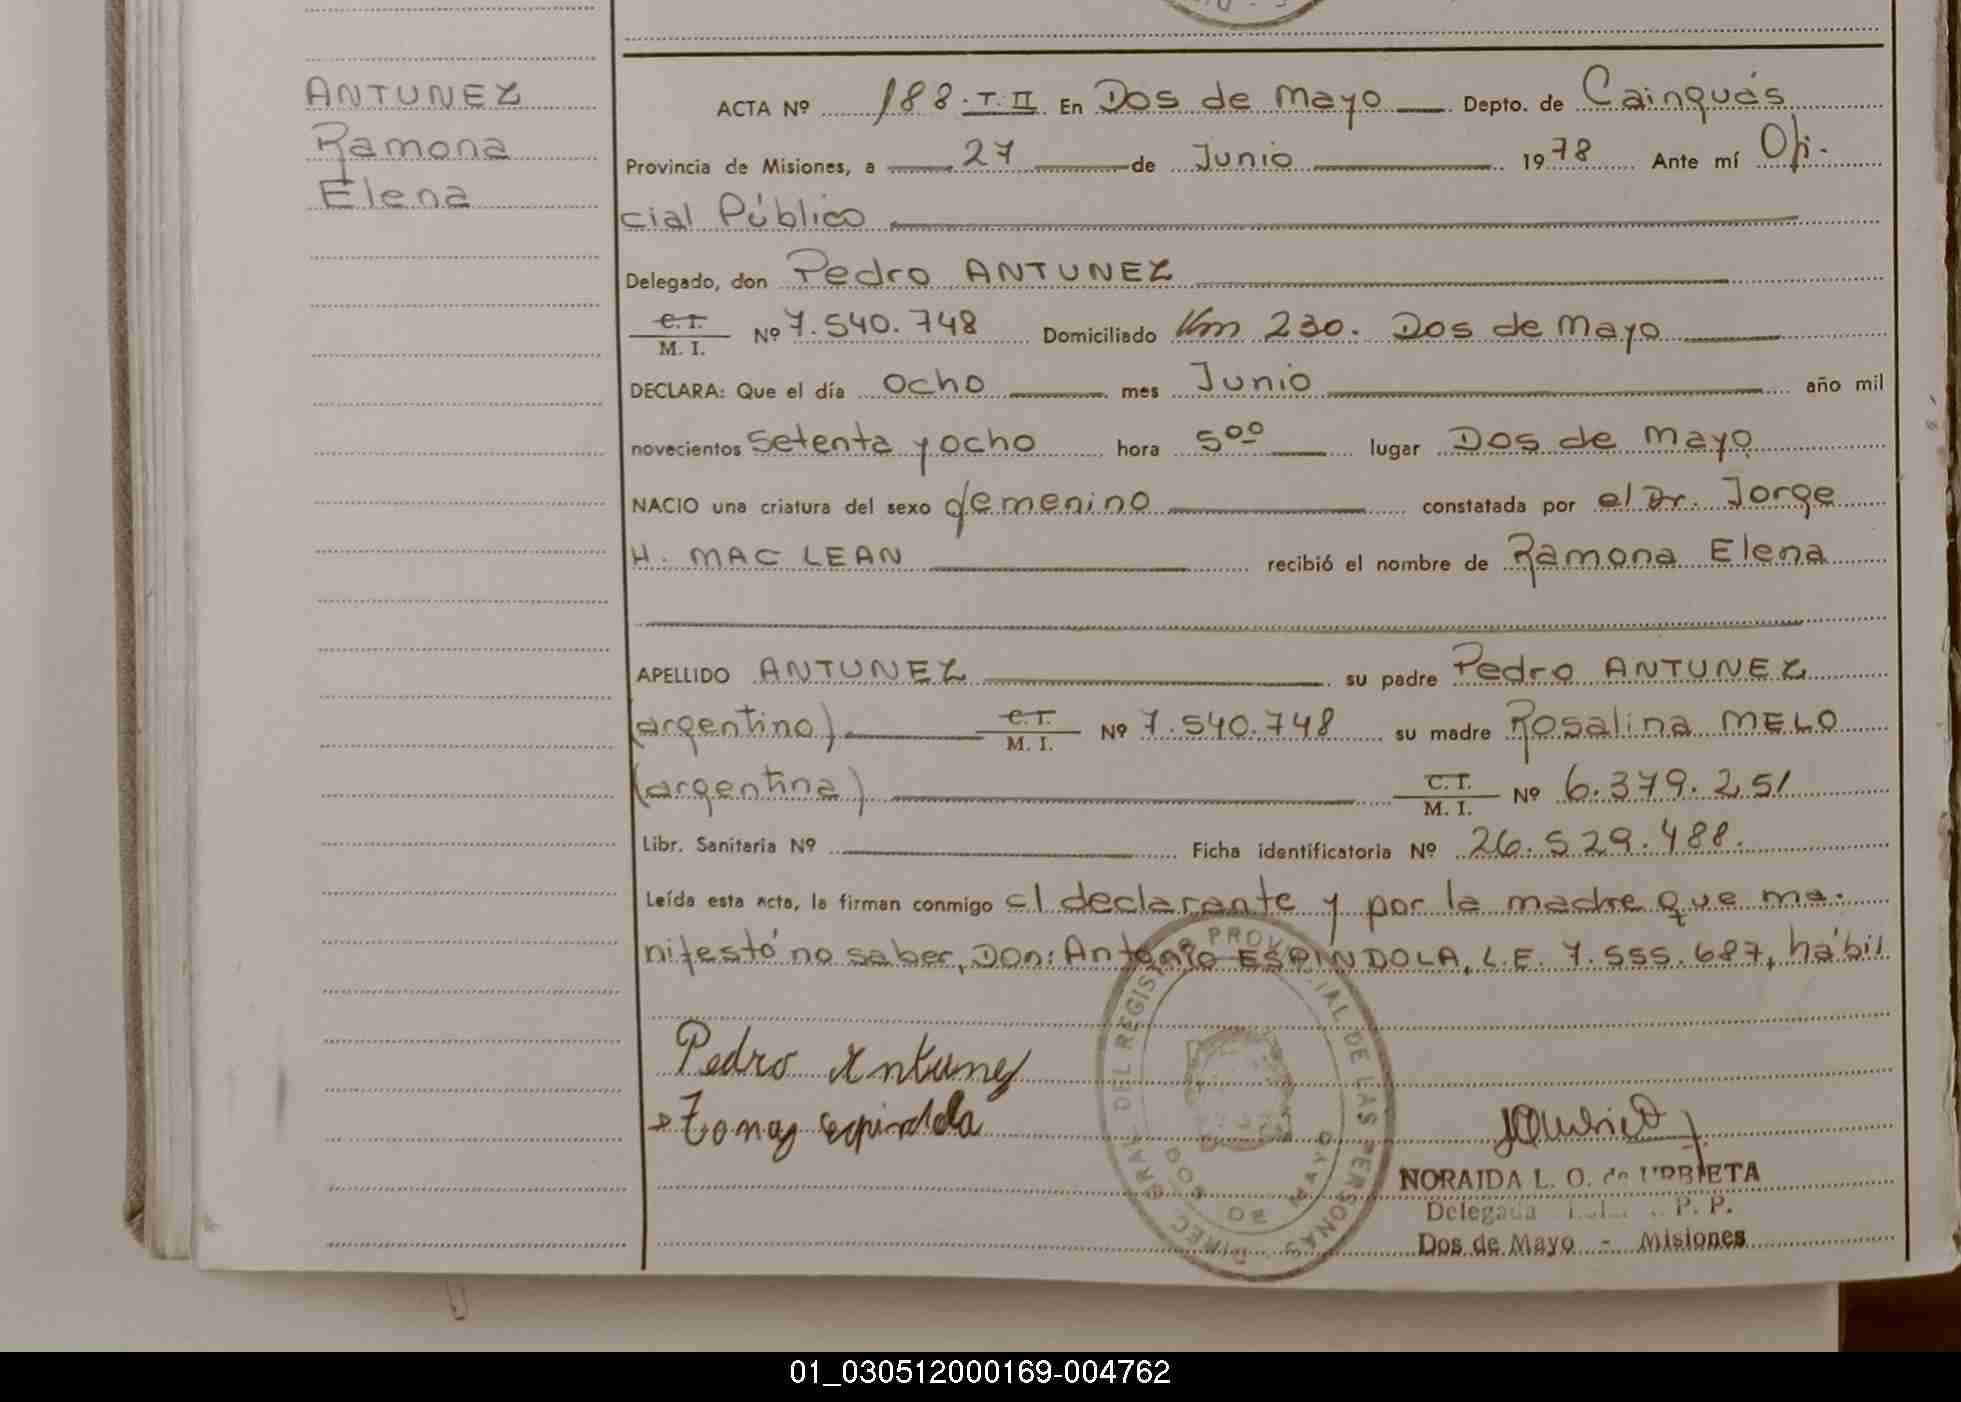 ANTUNEZ
Ramona
Elena
ACTA Nº 188. T. II En Dos de Mayo Depto. de Cainguás
Provincia de Misiones, a 27 de Junio 1978 Ante mí Ofi-
cial Público
Delegado, don Pedro ANTUNEZ
C.I. / M. I. Nº 7.540.748 Domiciliado Km 230. Dos de Mayo
DECLARA: Que el día ocho mes Junio año mil
novecientos setenta y ocho hora 5⁰⁰ lugar Dos de Mayo
NACIO una criatura del sexo femenino constatada por el Dr. Jorge
H. MAC LEAN recibió el nombre de Ramona Elena
APELLIDO ANTUNEZ su padre Pedro ANTUNEZ
(argentino) C.I. / M. I. Nº 7.540.748 su madre Rosalina MELO
(argentina) C.I. / M. I. Nº 6.379.251
Libr. Sanitaria Nº Ficha identificatoria Nº 26.529.488.
Leída esta acta, la firman conmigo el declarante y por la madre que ma-
nifestó no saber, Don: Antonio ESPINDOLA, L.E. 7.555.687, hábil
Pedro Antunez
Tomas espindola
DIREC. GRAL. DEL REGISTRO PROVINCIAL DE LAS PERSONAS
DOS DE MAYO
NORAIDA L. O. de URRIETA
Delegada P. P.
Dos de Mayo - Misiones
01_030512000169-004762